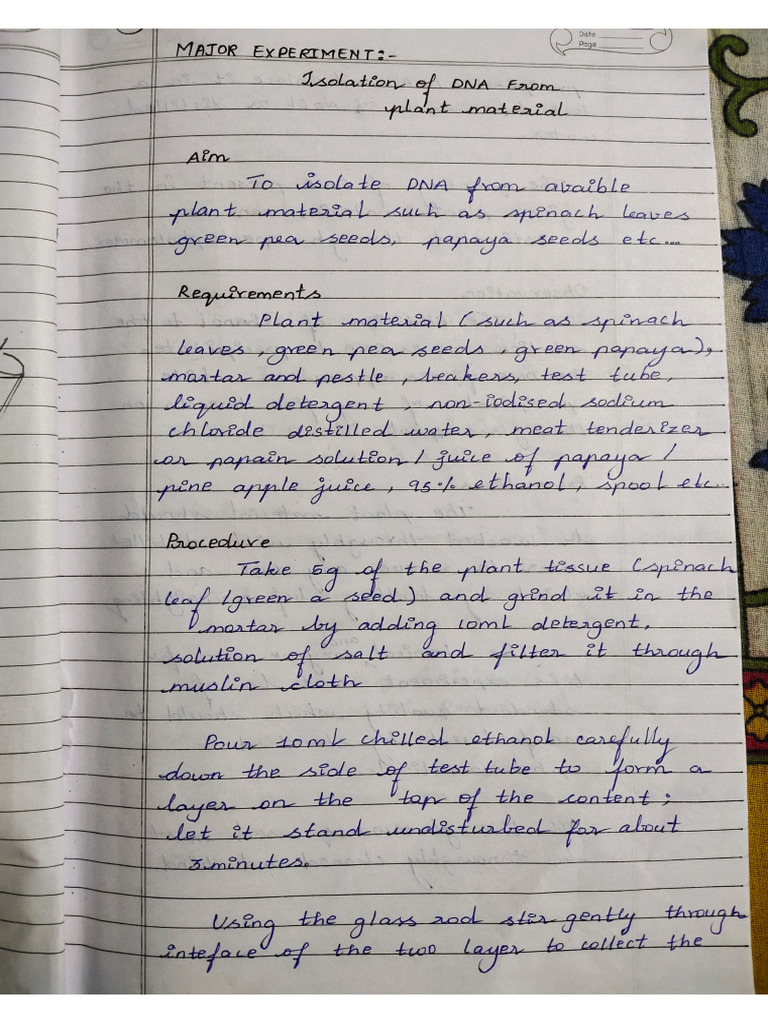 Date
Page
MAJOR EXPERIMENT:-
Isolation of DNA From
plant material
Aim
To isolate DNA from avaible
plant material such as spinach leaves
green pea seeds, papaya seeds etc....
Requirements
Plant material (such as spinach
leaves, green pea seeds, green papaya),
mortar and pestle, beakers, test tube,
liquid detergent, non-iodised sodium
chloride distilled water, meat tenderizer
or papain solution / juice of papaya /
pine apple juice, 95% ethanol, spool etc...
Procedure
Take 5g of the plant tissue (spinach
leaf /green a seed) and grind it in the
mortar by adding 10ml detergent,
solution of salt and filter it through
muslin cloth
Pour 10ml chilled ethanol carefully
down the side of test tube to form a
layer on the top of the content;
let it stand undisturbed for about
3minutes.
Using the glass rod stir gently through
inteface of the two layer to collect the